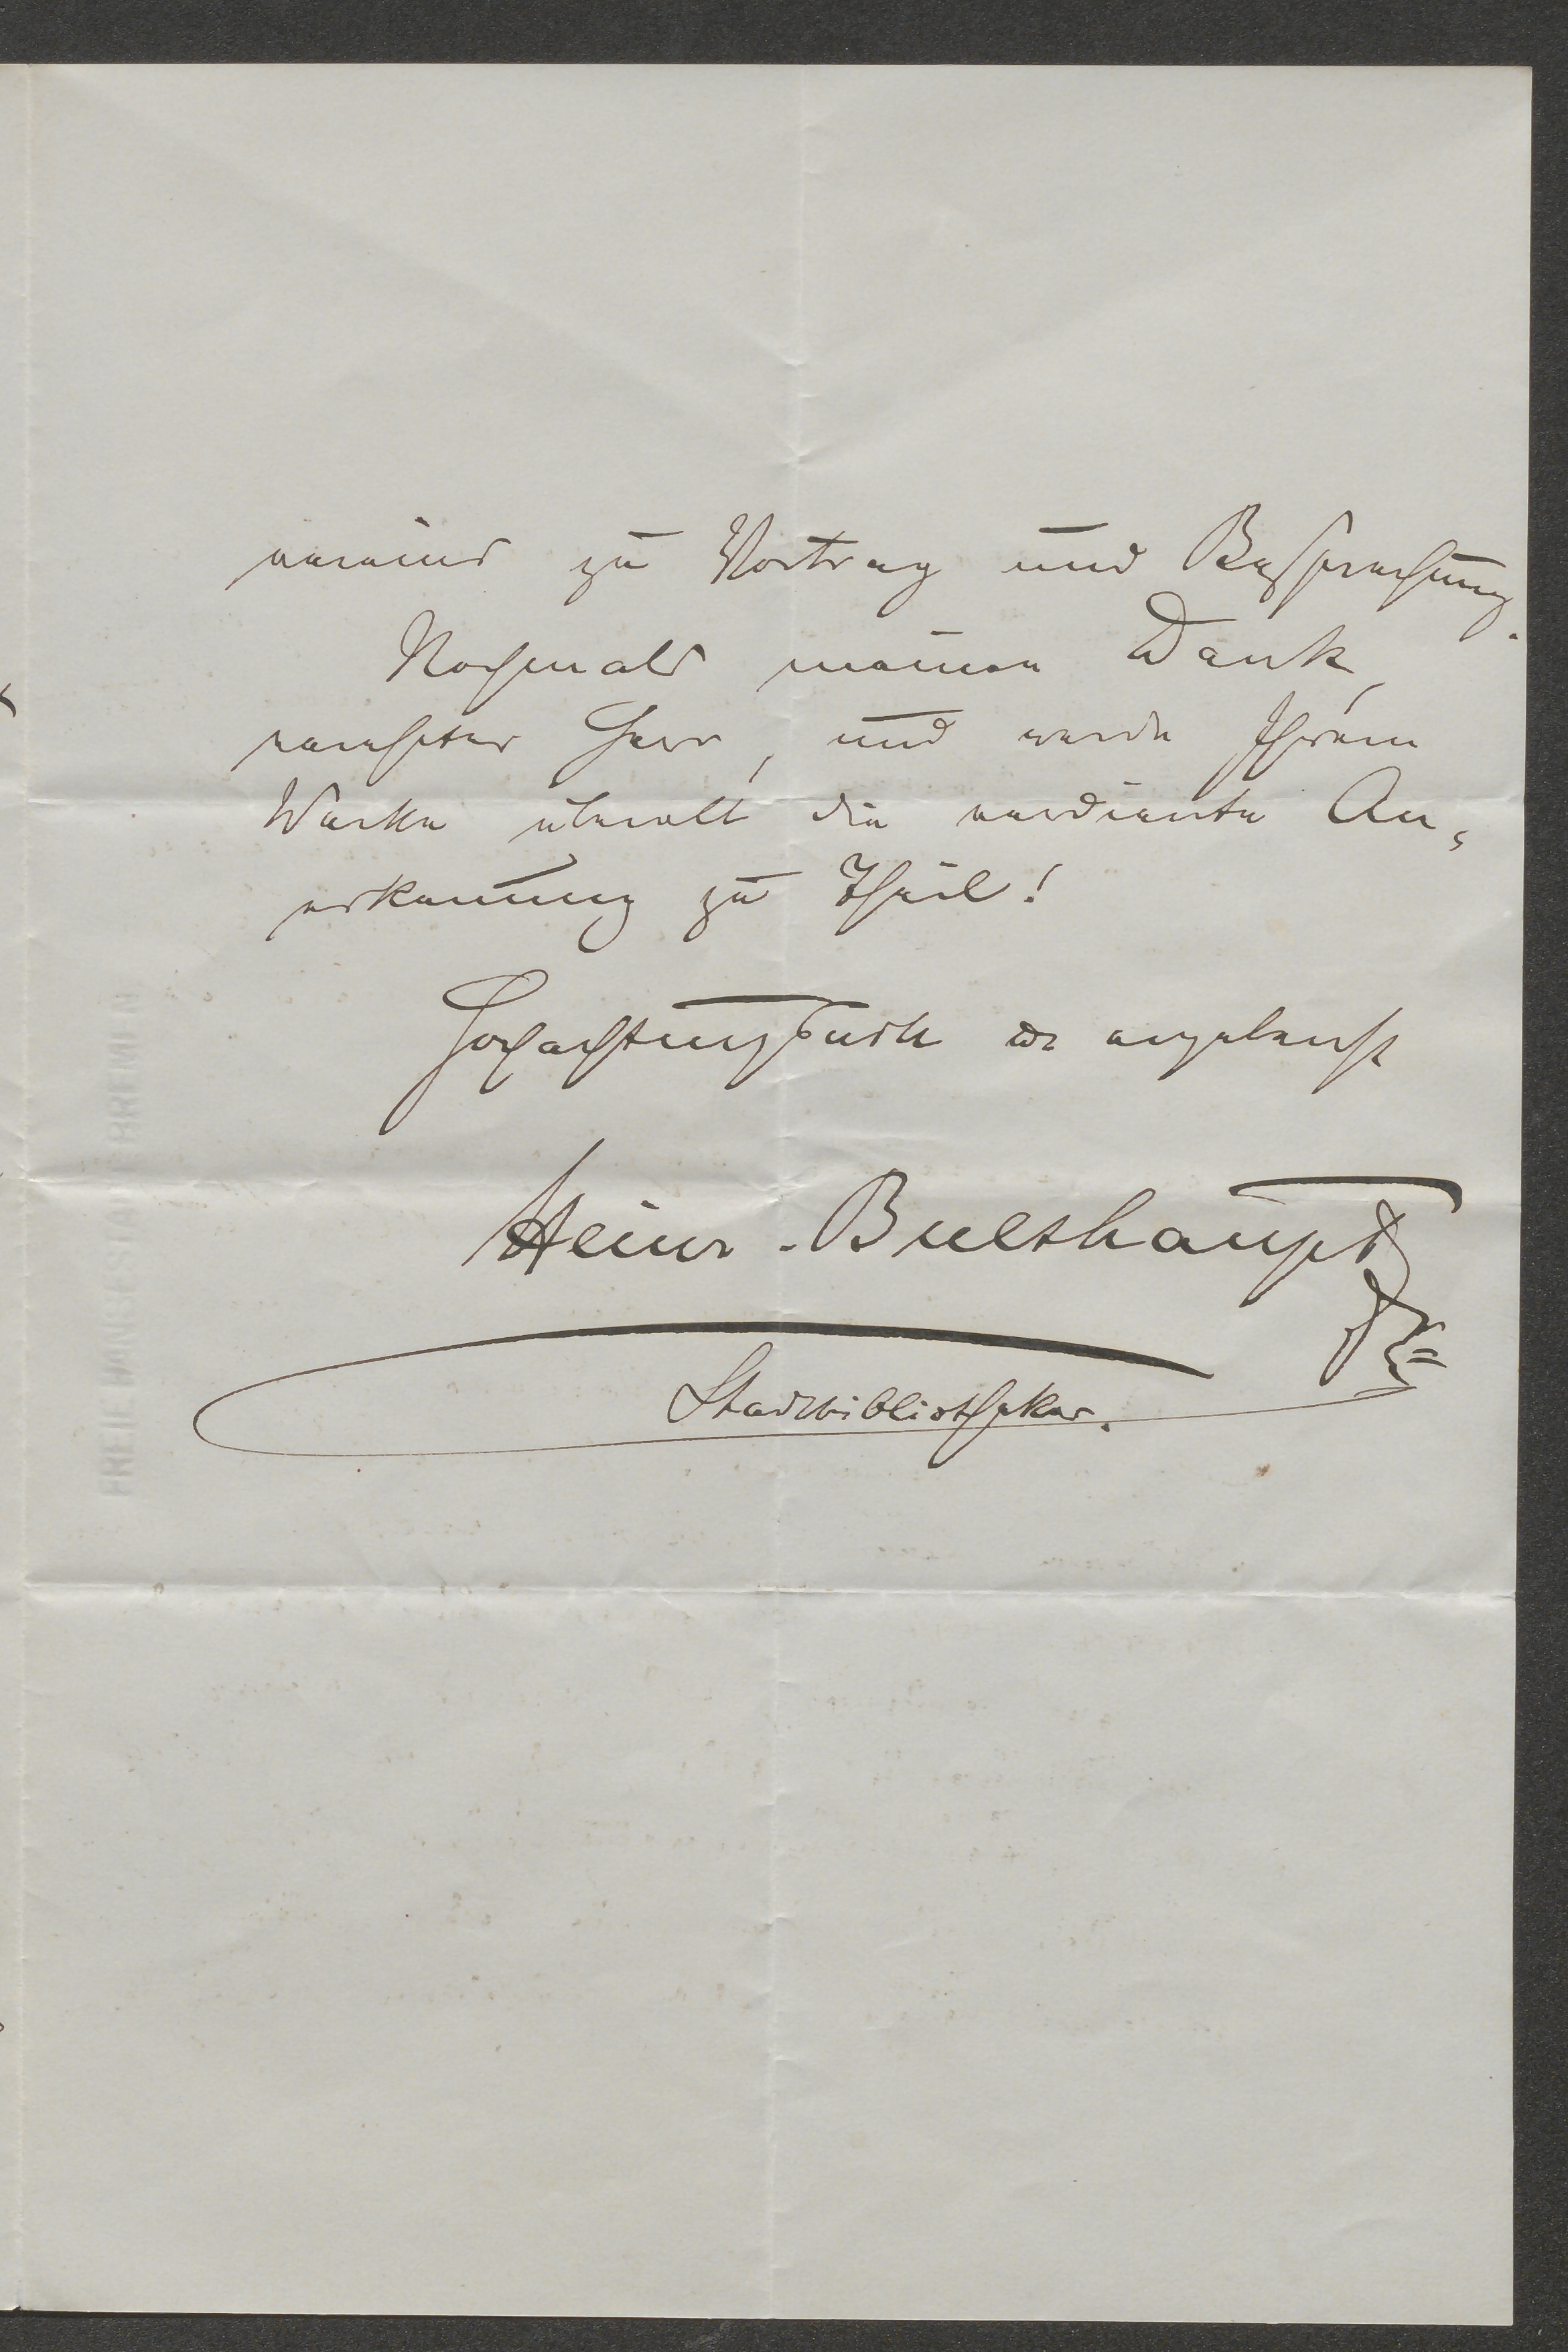 vereins zu Vortrag und Besprechung.
Nochmals meinen Dank,
verehrter Herr, und werde Ihrem
Werke überall die verdiente An-
erkennung zu Theil!
Hochachtungsvoll ergebenst
Heinr. Bulthaupt
Stadtbibliothekar.